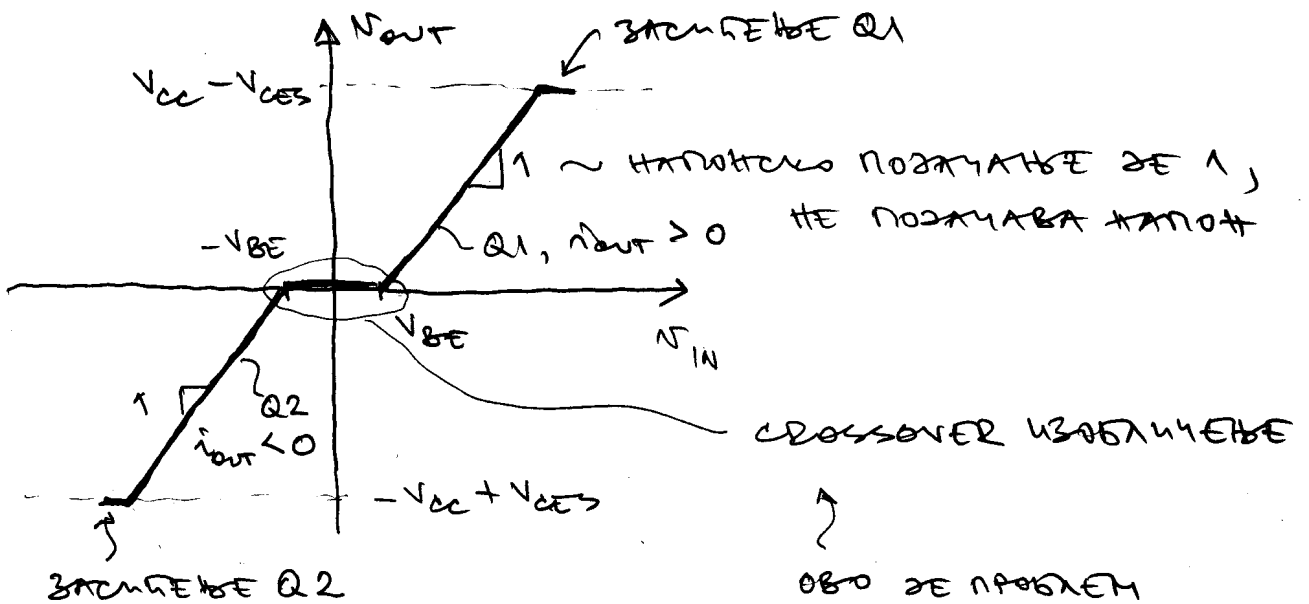 v_OUT
ЗАСИЋЕЊЕ Q1
V_CC − V_CES
1 ~ НАПОНСКО ПОЈАЧАЊЕ ЈЕ 1,
НЕ ПОЈАЧАВА НАПОН
Q1, i_OUT > 0
−V_BE
V_BE
v_IN
1
Q2
i_OUT < 0
CROSSOVER ИЗОБЛИЧЕЊЕ
−V_CC + V_CES
ЗАСИЋЕЊЕ Q2
ОВО ЈЕ ПРОБЛЕМ